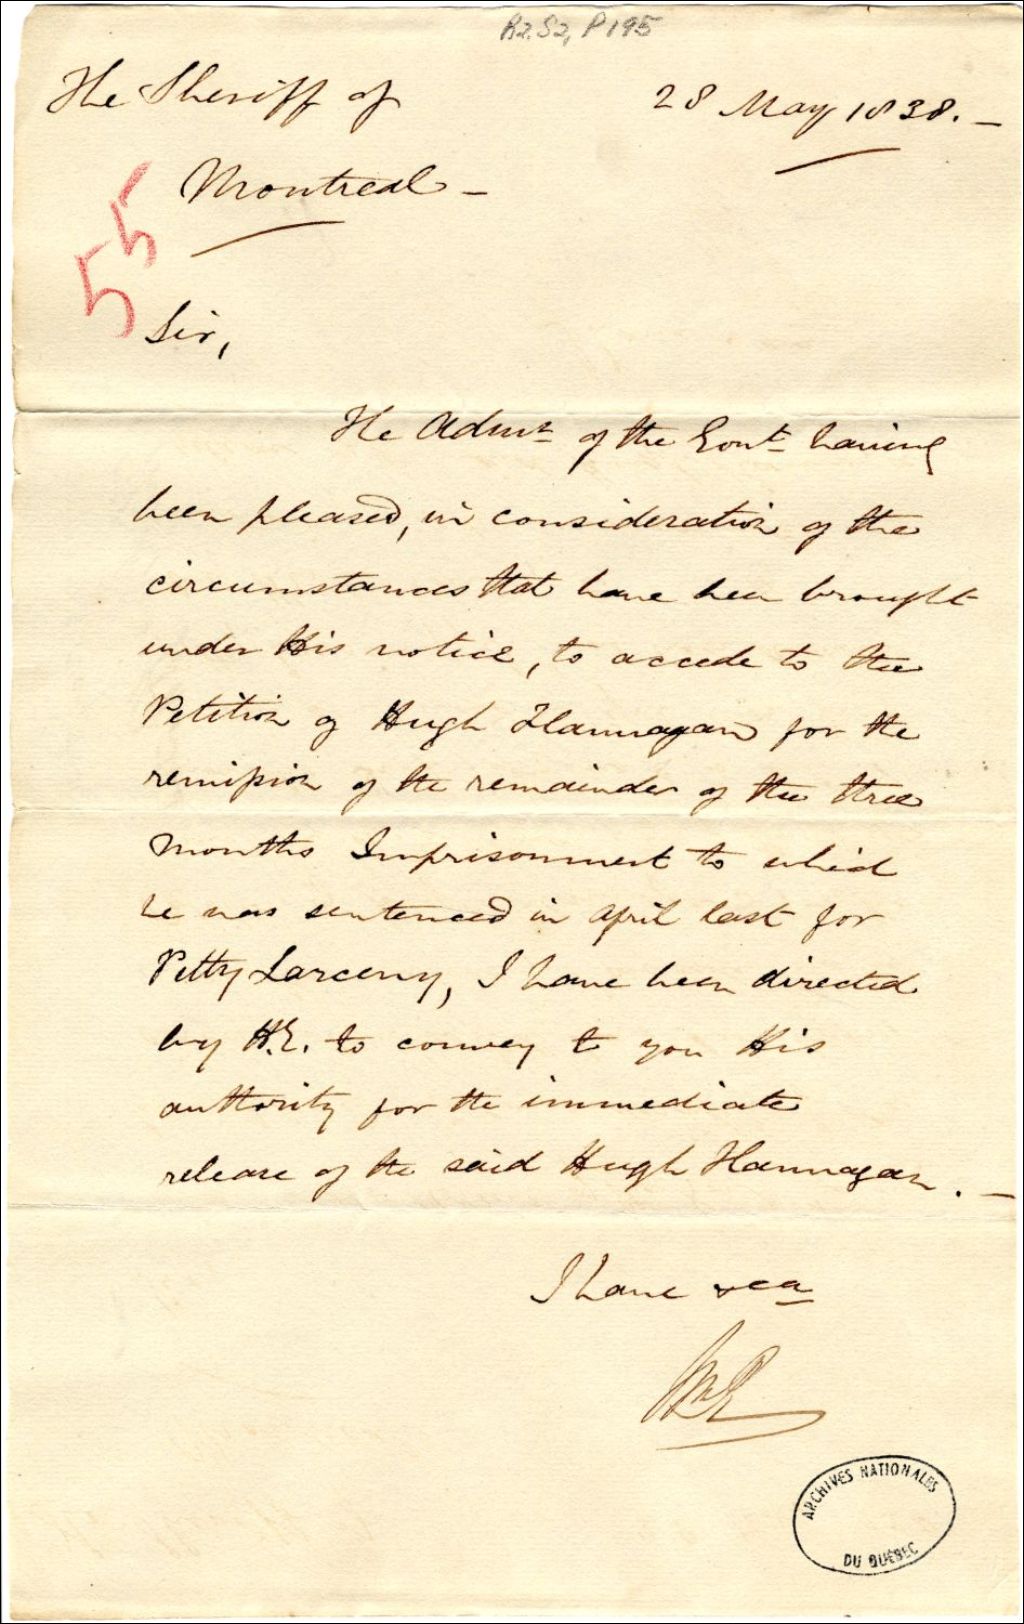 R2.S2, P195
The Sheriff of
28 May 1838. —
Montreal —
55
Sir,
The Admr of the Govt having
been pleased, in consideration of the
circumstances that have been brought
under His notice, to accede to the
Petition of Hugh Flannagan for the
remission of the remainder of the three
months Imprisonment to which
he was sentenced in April last for
Petty Larceny, I have been directed
by H.E. to convey to you His
authority for the immediate
release of the said Hugh Flannagan. —
I have &ca
ARCHIVES NATIONALES
DU QUÉBEC